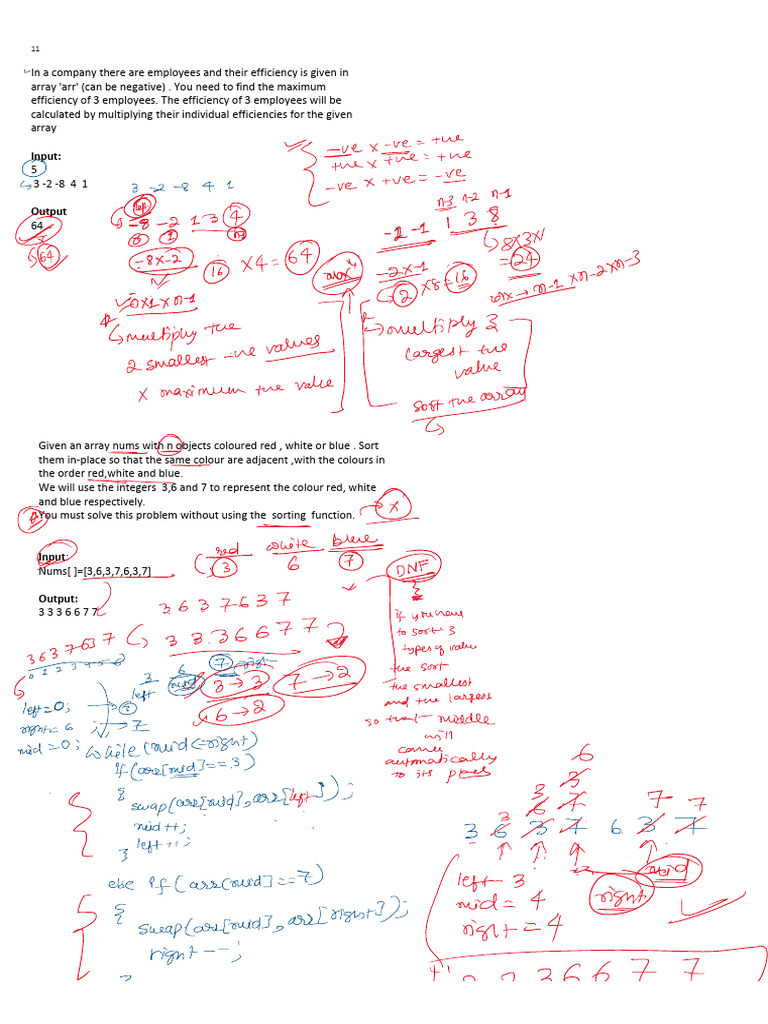 11
In a company there are employees and their efficiency is given in
array 'arr' (can be negative) . You need to find the maximum
efficiency of 3 employees. The efficiency of 3 employees will be
calculated by multiplying their individual efficiencies for the given
array
-ve x -ve = +ve
+ve x +ve = +ve
-ve x +ve = -ve
Input:
5
3 -2 -8 4 1
3 -2 -8 4 1
Output
64
64
left
-8 -2 1 3 4
0 1 n-1
-8x-2
16 x4 = 64
0x1xn-1
multiply the
2 smallest -ve values
x maximum the value
max
n-3 n-2 n-1
-2 -1 1 3 8
8x3x1
= 24
-2x-1
2 x8=16
n-1 xn-2xn-3
multiply 3
largest the
value
sort the array
Given an array nums with n objects coloured red , white or blue . Sort
them in-place so that the same colour are adjacent ,with the colours in
the order red,white and blue.
We will use the integers 3,6 and 7 to represent the colour red, white
and blue respectively.
You must solve this problem without using the sorting function.
x
Input:
Nums[ ]=[3,6,3,7,6,3,7]
red white blue
3 6 7
DNF
Output:
3 3 3 6 6 7 7
3 6 3 7 6 3 7
3 3 3 6 6 7 7
3 6 3 7 6 3 7
0 1 2 3 4 5 6
3 6 7
left mid right
3 → 3 7 → 2
6 → 2
if you have
to sort 3
types of value
the sort
the smallest
and the largest
so that middle
will
come
automatically
to its places
left=0;
right= 6
mid =0;
while(mid<=right)
if(arr[mid]==3)
{
swap(arr[mid],arr[left]);
mid++;
left++;
}
else if(arr[mid]==7)
{
swap(arr[mid],arr[right]);
right--;
6
3
3 6 7 7 7
3 6 3 7 6 3 7
left 3
mid= 4
right = 4
right
mid
3 3 3 6 6 7 7